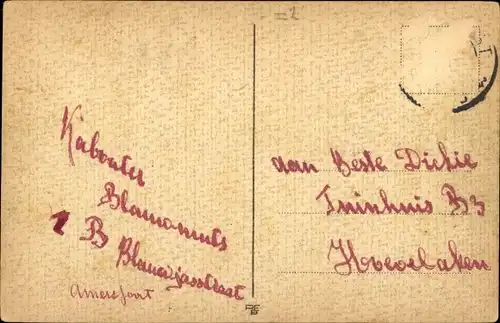 =2
Kabouter
Blauwmuts
1 B Blauwjasstraat
Amersfoort
aan Beste Dickie
Tuinhuis B3
Hoevelaken